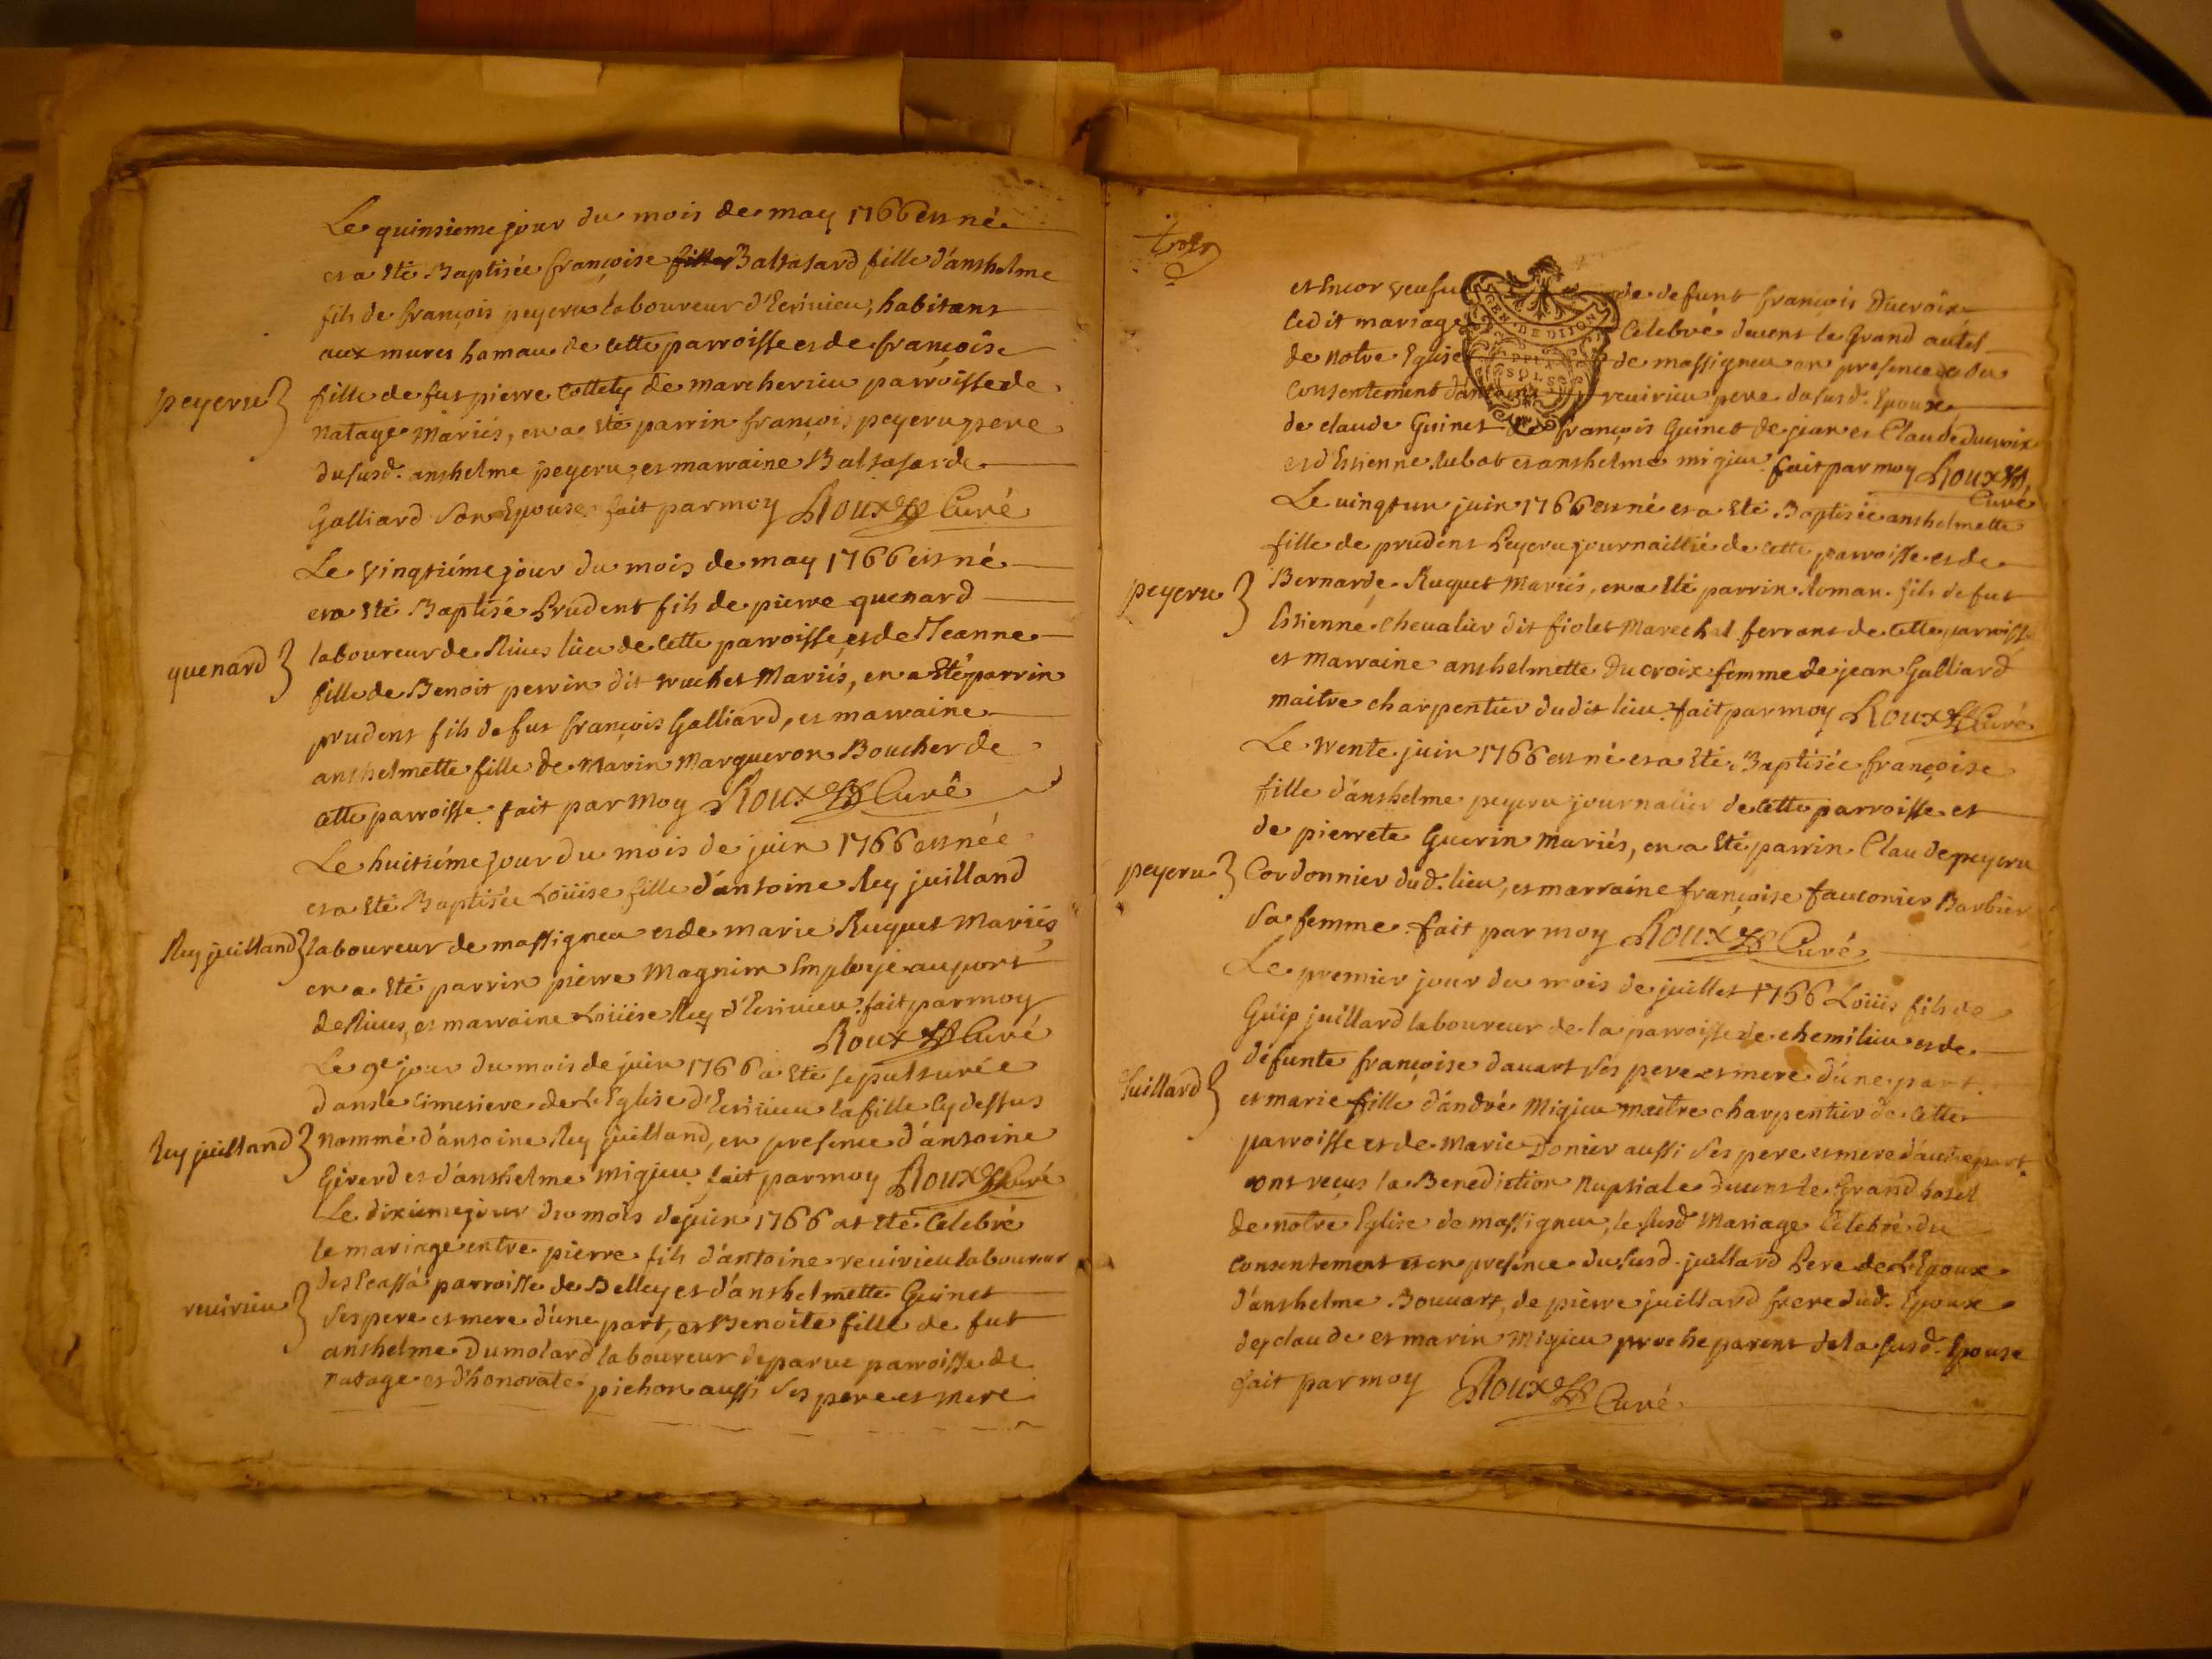 Le quinsieme jour du mois de may 1766 est né
et a été Baptisée françoise fille Balsasard fille d'anshelme
fils de françois peyeru laboureur d'Ecrivieu, habitant
aux mures hamau de cette parroisse et de françoise
peyeru
fille de fut pierre Cottety de Marcherieu parroisse de
Natage Mariés, en a été parrin françois peyeru pere
du susd. anshelme peyeru, et marraine Balsasarde
Galliard son Epouse. fait par moy Roux Curé
Le vingtiéme jour du mois de may 1766 est né
et a été Baptisé Prudent fils de pierre quenard
quenard
laboureur de Rives lieu de cette parroisse, et de Jeanne
fille de Benoit perrin dit trochet Mariés, en a Eté parrin
prudent fils de fut françois Galliard, et marraine
anthelmette fille de Marin Margueron Boucher de
cette parroisse. fait par moy Roux Curé
Le huitiéme Jour du mois de juin 1766 est née
et a été Baptisée Loüise fille d'antoine Rey juilland
Rey juilland
laboureur de massigneu et de marie Ruquet Mariés
en a été parrin pierre Magnin Employé au port
de Rives, et marraine Loüise Rey d'Ecrivieu. fait par moy
Roux Curé
Le 9e jour du mois de juin 1766 a été sepulturée
dans le cimetiere de L'Eglise d'Ecrivieu la fille cy dessus
Rey juilland
nommé d'antoine Rey juilland, en presence d'antoine
Girerd et d'anthelme migieu. fait par moy Roux Curé
Le dixieme jour du mois de juin 1766 at été Celebré
le mariage entre pierre fils d'antoine revirieu laboureur
revirieu
des Ecassà parroisse de Belley et d'anshelmette Guinet
ses pere et mere d'une part, et Benoite fille de fut
anshelme Dumolard laboureur de parve parroisse de
natage et d'honorate pichon aussi ses pere et mere
et Encor veufue de defunt françois Ducroix
Ledit mariage Celebré devent le Grand autel
GEN. DE DIJON
de notre Eglise de massigneu en presence et du
consentement d'antoine revirieu pere du susd. Epoux
de claude Guinet françois Guinet de jean et Claude ducroix
et d'Estienne lubot et anshelme migieu. fait par moy Roux
Curé
Le vingt un juin 1766 est né et a été Baptisée anshelmette
fille de prudent Peyeru journaillié de cette parroisse et de
peyeru
Bernarde Ruquet Mariés, en a été parrin Roman fils de fut
Estienne Chevalier dit fiolet Marechal ferrant de cette parroisse
et marraine anshelmette Ducroix femme de jean Galliard
maitre charpentier dudit lieu. fait par moy Roux Curé
Le trente juin 1766 est né et a été Baptisée françoise
fille d'anshelme peyeru journalier de cette parroisse et
de pierrete Guerin Mariés, en a été parrin Claude peyeru
peyeru
Cordonnier dud. lieu, et marraine françoise fauconier Barbier
sa femme. fait par moy Roux Curé
Le premier jour du mois de juillet 1766 Loüis fils de
Guip juillard laboureur de la parroisse de chemilieu et de
Juillard
défunte françoise davart ses pere et mere d'une part
et marie fille d'andré Migieu maitre charpentier de cette
parroisse et de Marie Donier aussi ses pere et mere d'autre part
ont reçus la Benediction Nuptiale devent le Grand hotel
de notre Eglise de massigneu, le susd Mariage Celebré du
consentement et en presence du susd. juillard Pere de L'Epoux
d'anshelme Bouvart, de pierre juillard frere dud. Epoux
de claude et marin Migieu proche parent de la susd. Epouse
fait par moy Roux Curé